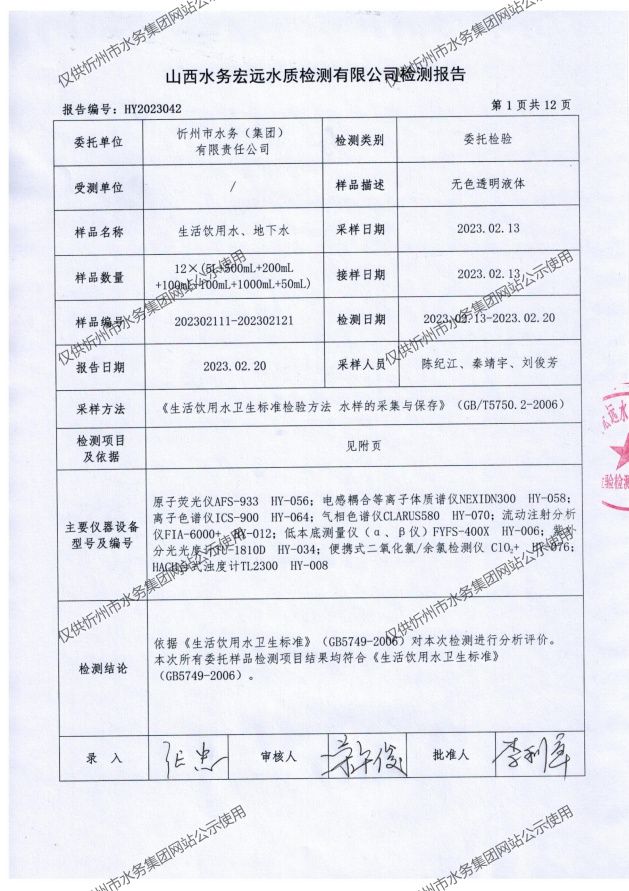 仅供忻州市水务集团网站公示使用
仅供忻州市水务集团网站公示使用
山西水务宏远水质检测有限公司检测报告
报告编号：HY2023042
第 1 页共 12 页
委托单位
忻州市水务（集团）
有限责任公司
检测类别
委托检验
受测单位
/
样品描述
无色透明液体
样品名称
生活饮用水、地下水
采样日期
2023.02.13
样品数量
12×(5L+500mL+200mL
+100mL+100mL+1000mL+50mL)
接样日期
2023.02.13
样品编号
202302111-202302121
检测日期
2023.02.13-2023.02.20
报告日期
2023.02.20
采样人员
陈纪江、秦靖宇、刘俊芳
仅供忻州市水务集团网站公示使用
仅供忻州市水务集团网站公示使用
采样方法
《生活饮用水卫生标准检验方法 水样的采集与保存》（GB/T5750.2-2006）
检测项目
及依据
见附页
主要仪器设备
型号及编号
原子荧光仪AFS-933 HY-056；电感耦合等离子体质谱仪NEXIDN300 HY-058；
离子色谱仪ICS-900 HY-064；气相色谱仪CLARUS580 HY-070；流动注射分析
仪FIA-6000+ HY-012；低本底测量仪（α、β仪）FYFS-400X HY-006；紫外
分光光度计TU-1810D HY-034；便携式二氧化氯/余氯检测仪 ClO₂+ HY-076；
HACH台式浊度计TL2300 HY-008
仅供忻州市水务集团网站公示使用
仅供忻州市水务集团网站公示使用
检测结论
依据《生活饮用水卫生标准》（GB5749-2006）对本次检测进行分析评价。
本次所有委托样品检测项目结果均符合《生活饮用水卫生标准》
（GB5749-2006）。
录 入
张忠
审核人
批准人
李利军
宏远水
检验检测
州市水务集团网站公示使用
州市水务集团网站公示使用